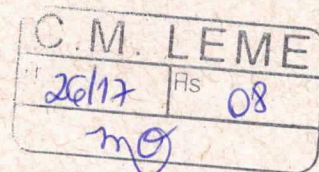 C.M. LEME
26/17 Fls 08